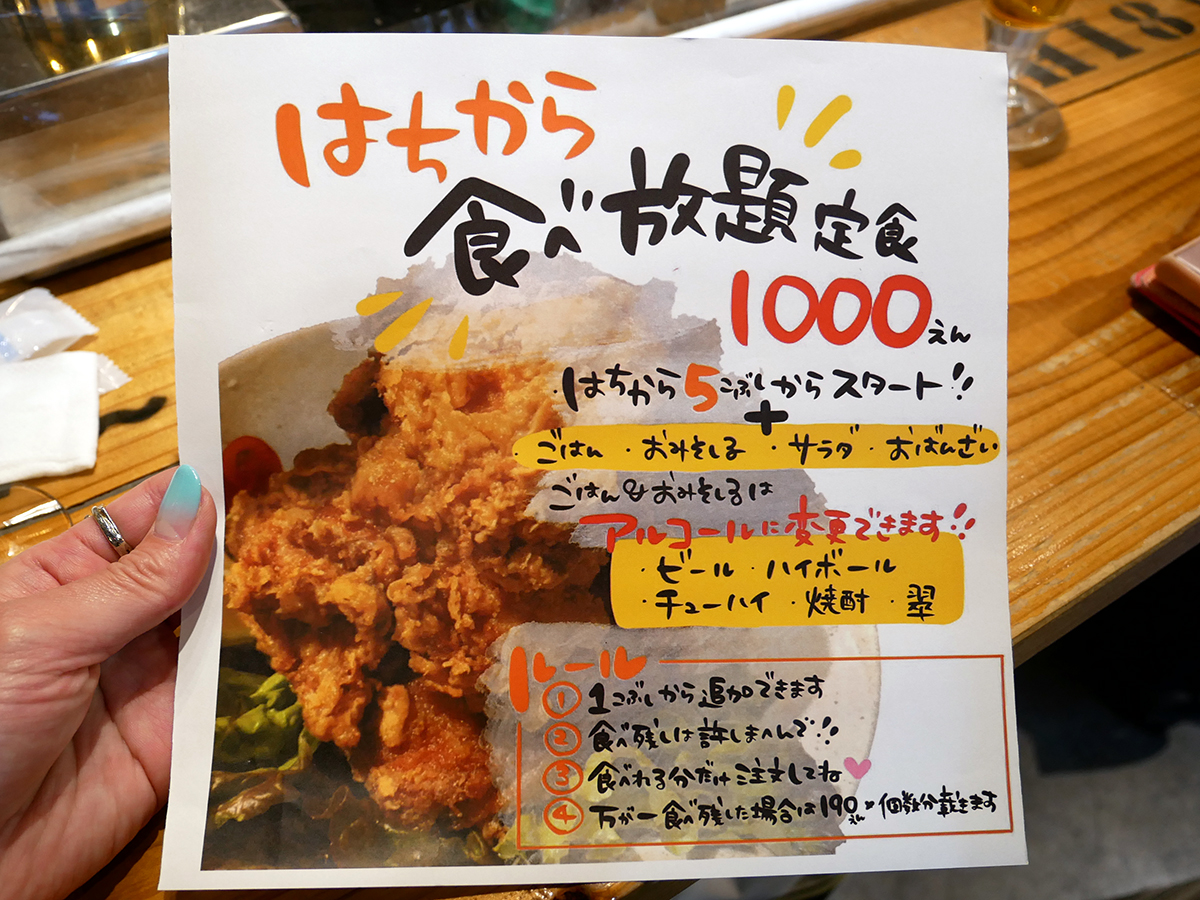 はちから
食べ放題定食
1000えん
はちから5こぶしからスタート!!
+
・ごはん ・おみそしる ・サラダ ・おばんざい
ごはん&おみそしるは
アルコールに変更できます!!
・ビール ・ハイボール
・チューハイ ・焼酎 ・翠
ルール
① 1こぶしから追加できます
② 食べ残しは許しまへんで!!
③ 食べれる分だけ注文してね
④ 万が一食べ残した場合は190えん×個数分戴きます